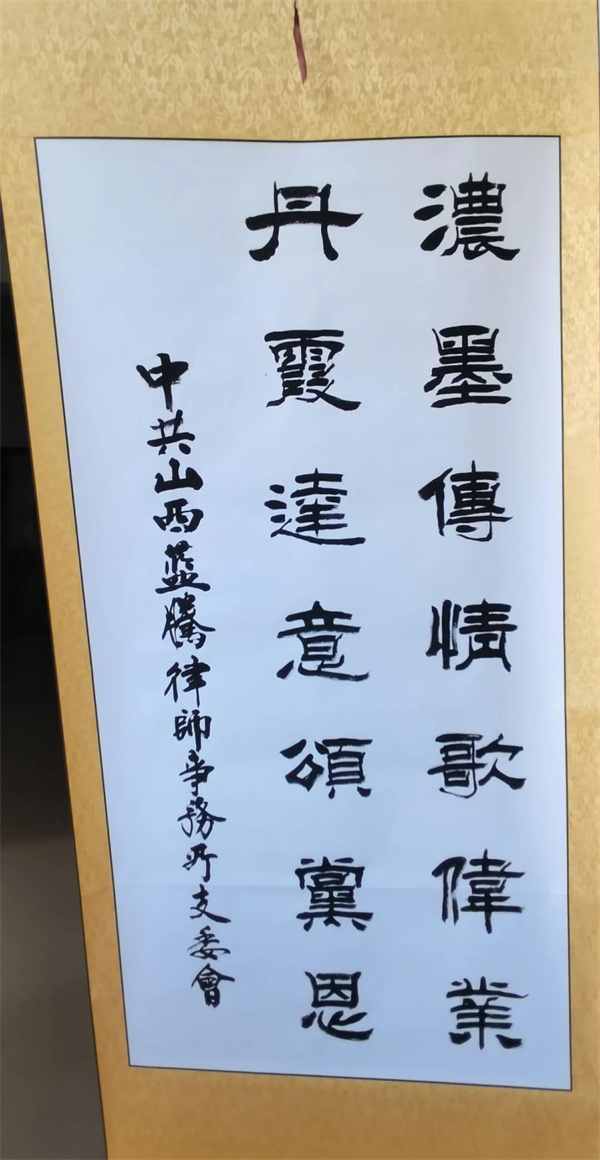 濃墨傳情歌偉業
丹霞達意頌黨恩
中共山西藍騰律師事務所支委會